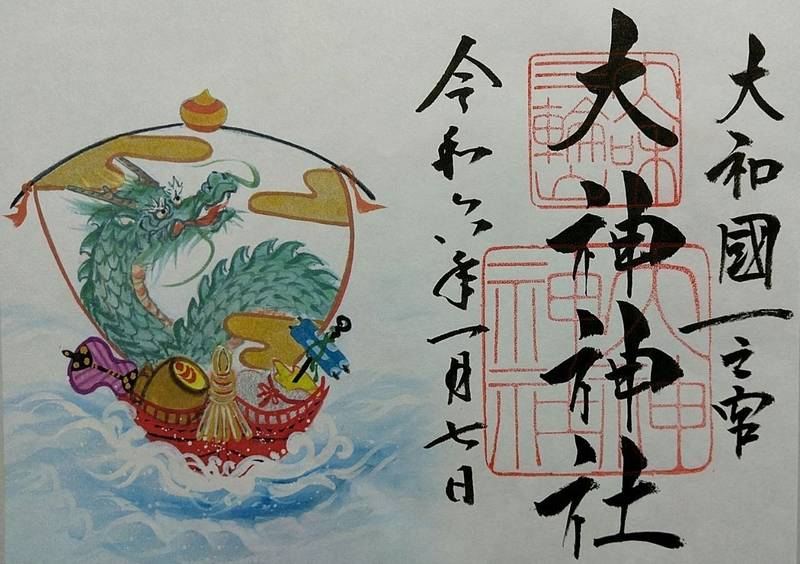 大和國一之宮
大神神社
令和六年一月七日
三輪山
大神神社